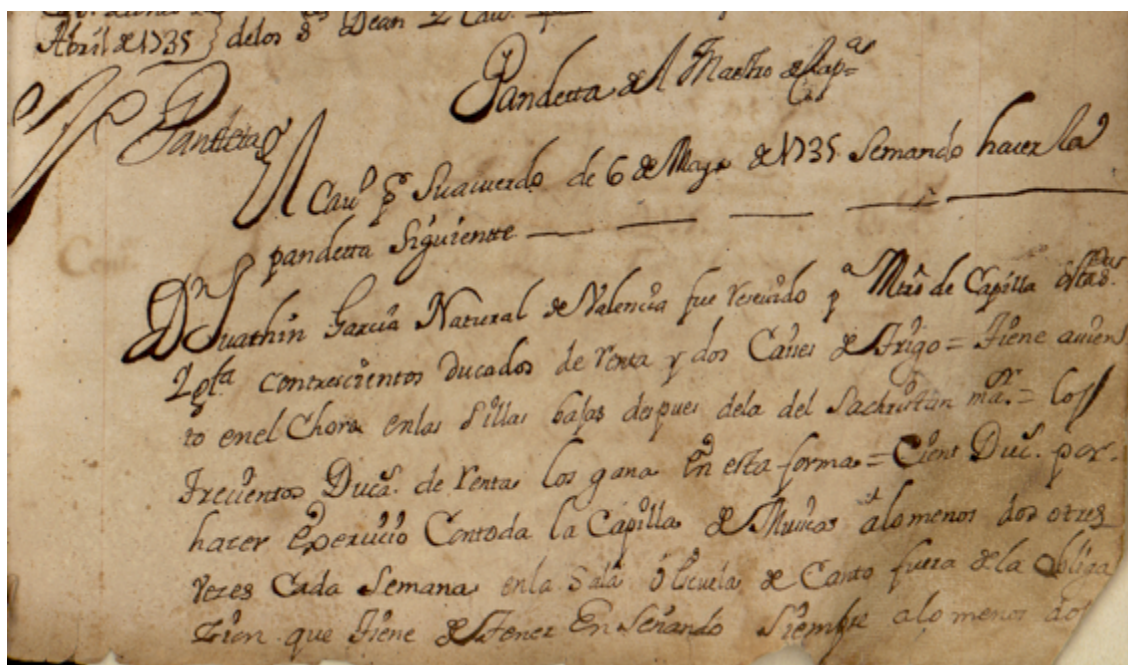 Abril de 1735 } delos S Dean 2 Cav.
Pandetta del Maestro de Cap.
Pandetta
El Cav.º p.r Su acuerdo de 6 de Mayo de 1735 Semando hacer la
pandetta Siguiente
Dn Juathin Garcia Natural de Valencia fue recevido p.ª Mtro de Capilla
con trescientos Ducados de renta y dos Caices de Trigo = Tiene assien
to enel Choro enlas Sillas bajas despues dela del Sachristan ma.or = Los
trecientos Duca.s de renta los gana en esta forma = Cient Duc.s por
hacer Exercicio Contoda la Capilla de Musica alomenos dos otres
vezes Cada Semana enla Sala ó Escuela de Canto fuera dela Obliga
cion que tiene de tener Enseñando Siempre alomenos dos